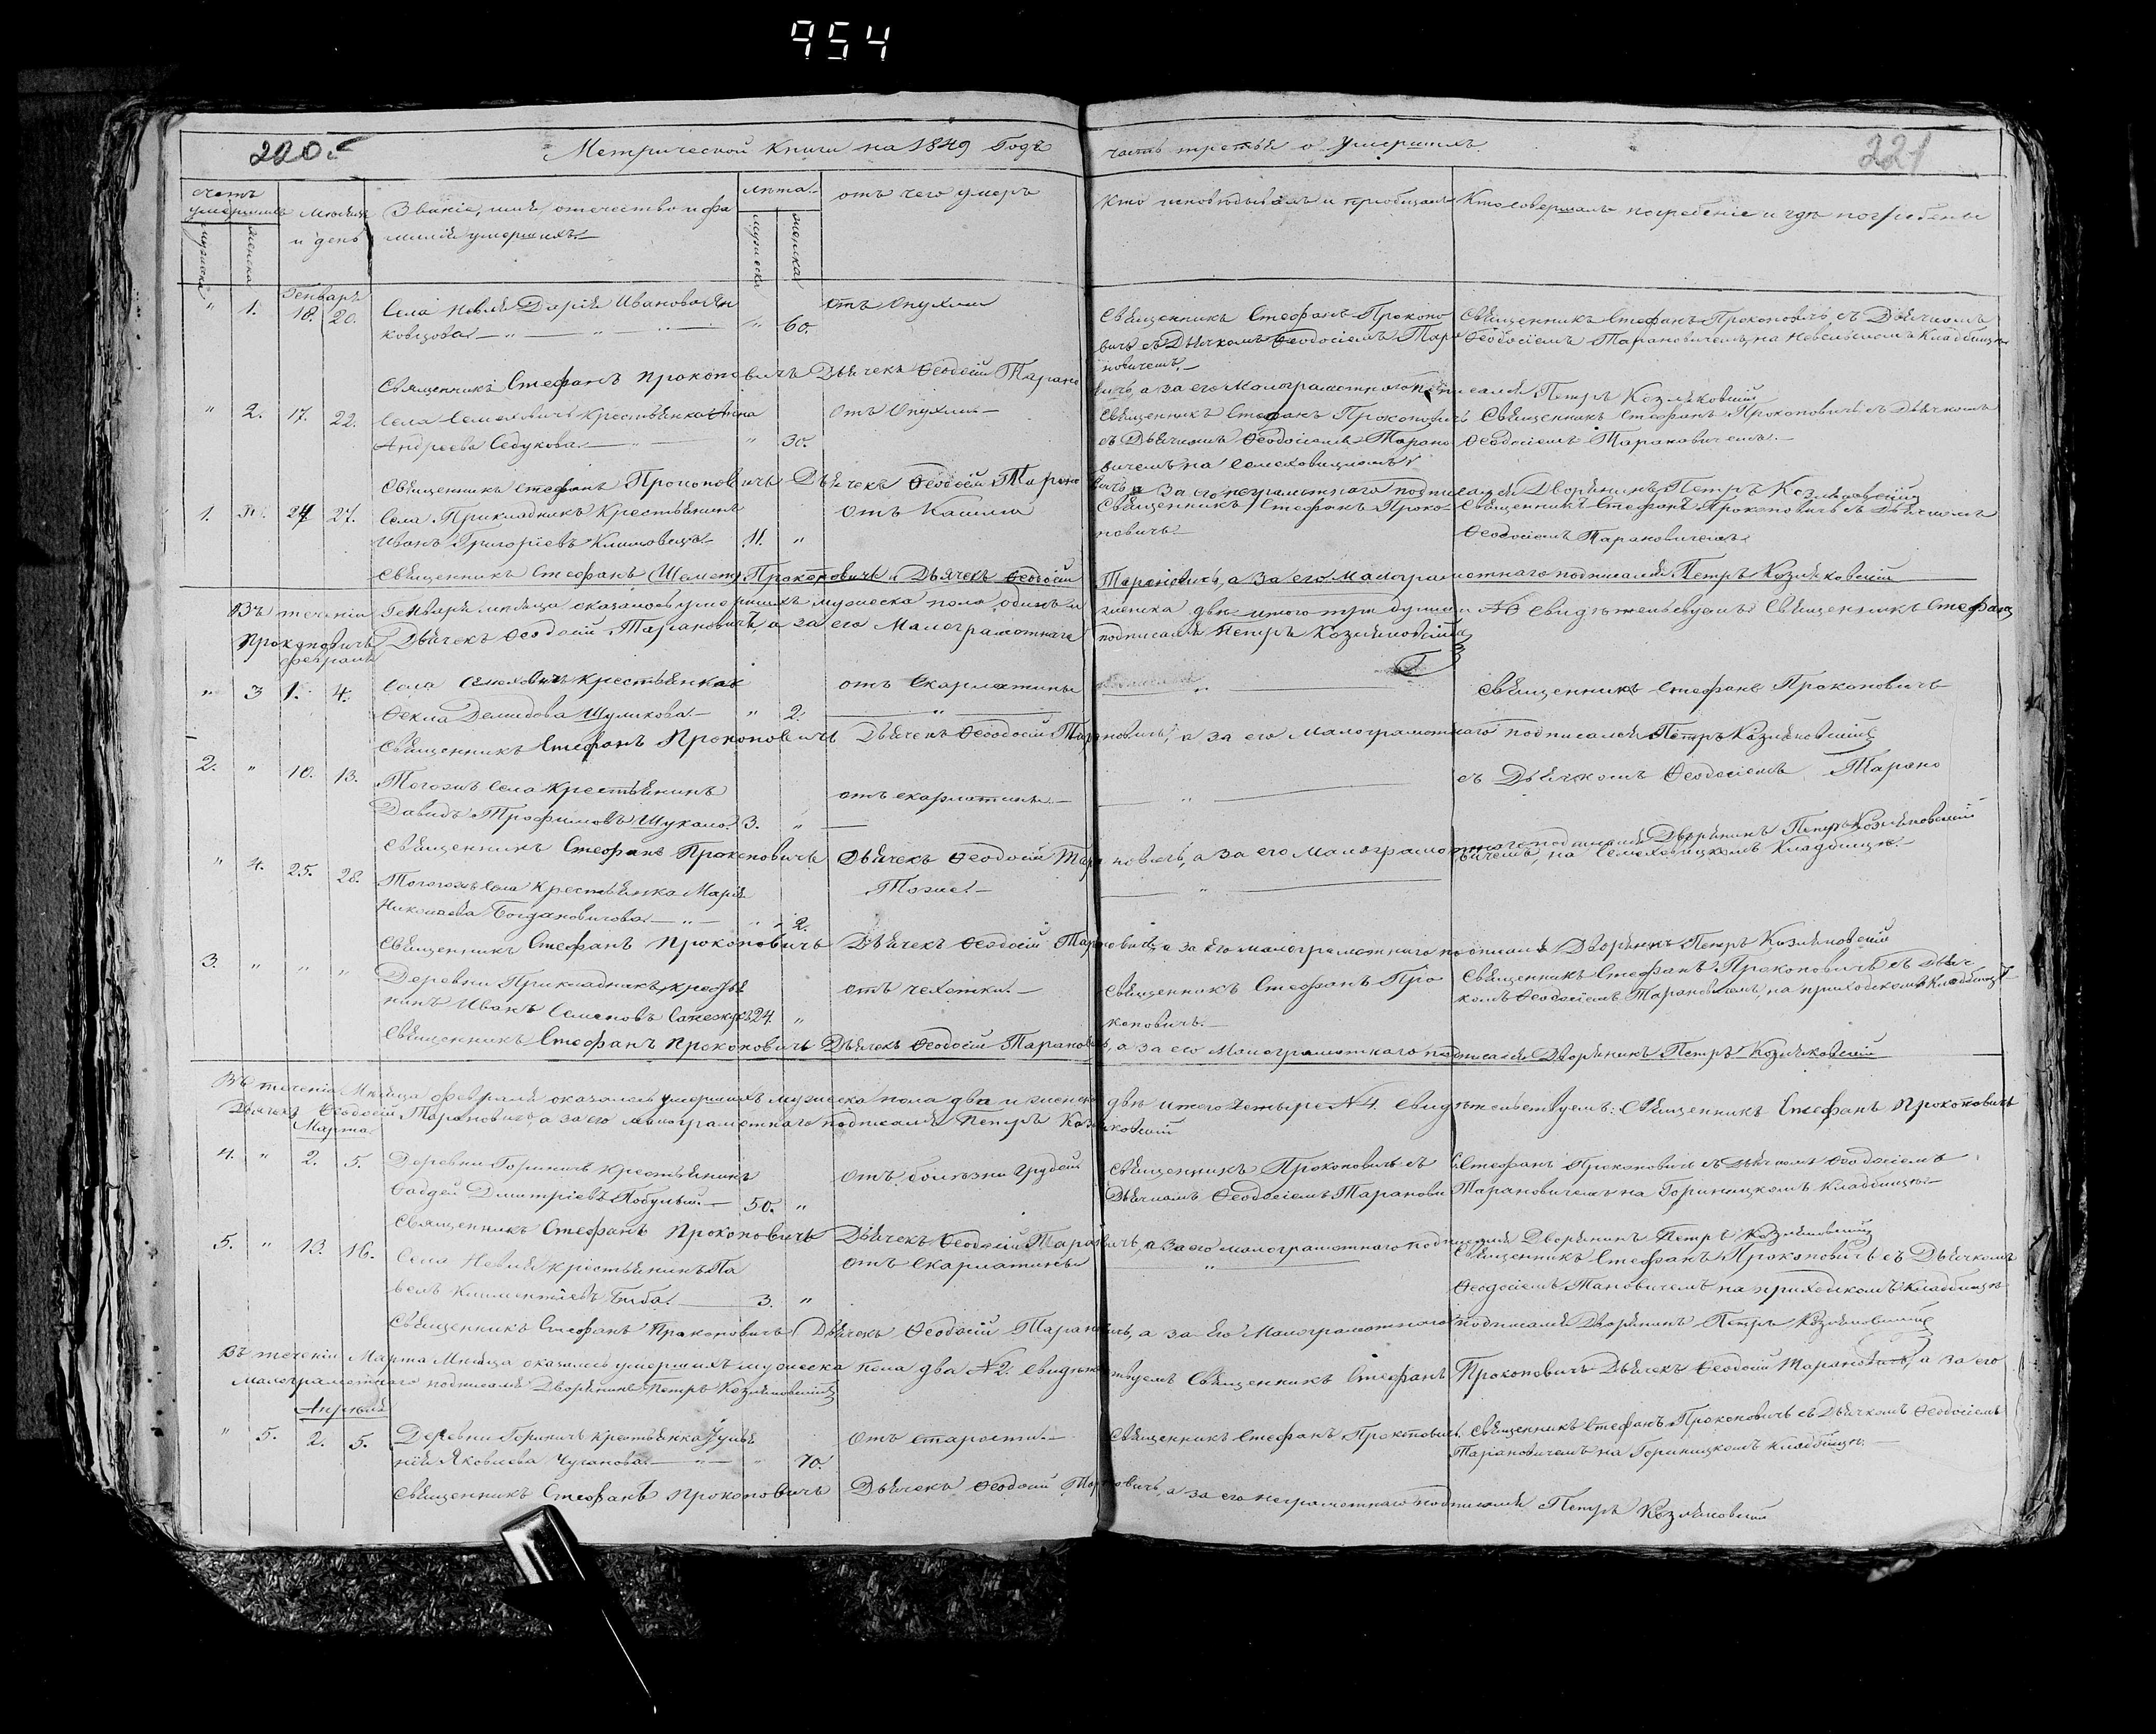 954
220
Метрической Книги на 1849 Годъ часть третья о Умершихъ.
221
счетъ умершихъ
мужеска
женска
Мѣсяцъ и день
Званіе, имя, отечество и фа
милія умершихъ.
лѣта
мужеска
женска
отъ чего умеръ
Кто исповѣдывалъ и приобщалъ
Кто совершалъ погребеніе и гдѣ погребены
Генварь
" 1. 18. 20. Села Невля Дарія Иванова
ковцова " 60. отъ Опухли
Священникъ Стефанъ Прокопо
вичъ съ Дьячкомъ Ѳеодосіемъ Тара
новичемъ.
Священникъ Стефанъ Прокоповичъ съ Дьячкомъ
Ѳеодосіемъ Тарановичемъ, на Невельскомъ Кладбищѣ
Священникъ Стефанъ Прокоповичъ Дьячекъ Ѳеодосій Тарановичъ, а за его Малограмотного подписался Петръ Козляковскій
" 2. 17. 22. Села Семеховичъ Крестьянка Анна
Андреева Седукова " 30. отъ Опухли
Священникъ Стефанъ Прокоповичъ
съ Дьячкомъ Ѳеодосіемъ Тарано
вичемъ на семеховицкомъ
Священникъ Стефанъ Прокоповичъ съ Дьячкомъ
Ѳеодосіемъ Тарановичемъ.
Священникъ Стефанъ Прокоповичъ Дьячекъ Ѳеодосій Тарановичъ а за его неграмотнаго подписался Дворянинъ Петръ Козляковскій
1. " 24 27. Села Прикладникъ Крестьянинъ
Иванъ Григоріевъ Климовецъ 11. " отъ Кашля
Священникъ Стефанъ Проко
повичъ.
Священникъ Стефанъ Прокоповичъ съ Дьячкомъ
Ѳеодосіемъ Тарановичемъ.
Священникъ Стефанъ Прокоповичъ Дьячекъ Ѳеодосій Тарановичъ, а за его малограмотнаго подписался Петръ Козляковскій
Въ теченіи Генваря мѣсяца оказалось умершихъ мужеска пола одинъ и женска двѣ итого три души №3 свидѣтельствуемъ Священникъ Стефанъ
Прокоповичъ Дьячекъ Ѳеодосій Тарановичъ, а за его Малограмотнаго подписался Петръ Козляковскій
Февраль
" 3 1. 4. Села Семеховичъ Крестьянка
Ѳекла Демидова Шуликова. " 2. отъ Скарлатины
"
Священникъ Стефанъ Прокоповичъ
Священникъ Стефанъ Прокоповичъ Дьячекъ Ѳеодосій Тарановичъ, а за его Малограмотнаго подписался Петръ Козляковскій
2. " 10. 13. Тогожъ Села Крестьянинъ
Давидъ Трофимовъ 3. " отъ скарлатины.
"
съ Дьячкомъ Ѳеодосіемъ Тарано
Священникъ Стефанъ Прокоповичъ Дьячекъ Ѳеодосій Тарановичъ, а за его Малограмотнаго подписался Дворянинъ Петръ Козляковскій
" 4. 25. 28. Тогожъ Села Крестьянка Марія
Николаева Богдановичова " 2. Тоже.
"
вичемъ, на Семеховицкомъ Кладбищѣ.
Священникъ Стефанъ Прокоповичъ Дьячекъ Ѳеодосій Тарановичъ, а за его малограмотнаго подписался Дворянинъ Петръ Козляковскій
3. " " " Деревни Прикладникъ, крестья
нинъ Иванъ Семеновъ 24. " отъ чехотки.
Священникъ Стефанъ Про
коповичъ.
Священникъ Стефанъ Прокоповичъ съ Дьяч
комъ Ѳеодосіемъ Тарановичемъ, на приходскомъ Кладбищѣ
Священникъ Стефанъ Прокоповичъ Дьячекъ Ѳеодосій Тарановичъ, а за его Малограмотнаго подписался Дворянинъ Петръ Козляковскій
Въ теченіи Мѣсяца февраля оказалось умершихъ мужеска пола два и женска двѣ итого четыре №4. свидѣтельствуемъ: Священникъ Стефанъ Прокоповичъ
Дьячекъ Ѳеодосій Тарановичъ, а за его малограмотнаго подписался Петръ Козляковскій
Марта
4. " 2. 5. Деревни Гориничъ Крестьянинъ
Дмитріевъ 50. " отъ болѣзни грудей
Священникъ Прокоповичъ съ
Дьячкомъ Ѳеодосіемъ Таранови
Стефанъ Прокоповичъ съ Дьячкомъ Ѳеодосіемъ
Тарановичемъ на Гориницкомъ кладбищѣ.
Священникъ Стефанъ Прокоповичъ Дьячекъ Ѳеодосій Тарановичъ, а за его малограмотнаго подписался Дворянинъ Петръ Козляковскій
5. " 13. 16. Села Невля крестьянинъ Па
велъ Климентіевъ 3. " отъ Скарлатины
"
Священникъ Стефанъ Прокоповичъ съ Дьячкомъ
Ѳеодосіемъ Тановичемъ на приходскомъ Кладбищѣ
Священникъ Стефанъ Прокоповичъ Дьячекъ Ѳеодосій Тарановичъ, а за его Малограмотнаго подписался Дворянинъ Петръ Козляковскій
Въ теченіи Марта Мѣсяца оказалось умершихъ мужеска пола два №2. Свидѣтельствуемъ Священникъ Стефанъ Прокоповичъ Дьячекъ Ѳеодосій Тарановичъ, а за его
малограмотнаго подписался Дворянинъ Петръ Козляковскій
Апрѣля
" 5. 2. 5. Деревни Гориничъ крестьянка Улья
нія Яковлева Чуганова " 70. отъ старости.
Священникъ Стефанъ Прокоповичъ.
Священникъ Стефанъ Прокоповичъ съ Дьячкомъ Ѳеодосіемъ
Тарановичемъ на Гориницкомъ Кладбищѣ.
Священникъ Стефанъ Прокоповичъ Дьячекъ Ѳеодосій Тарановичъ, а за его неграмотнаго подписался Петръ Козляковскій